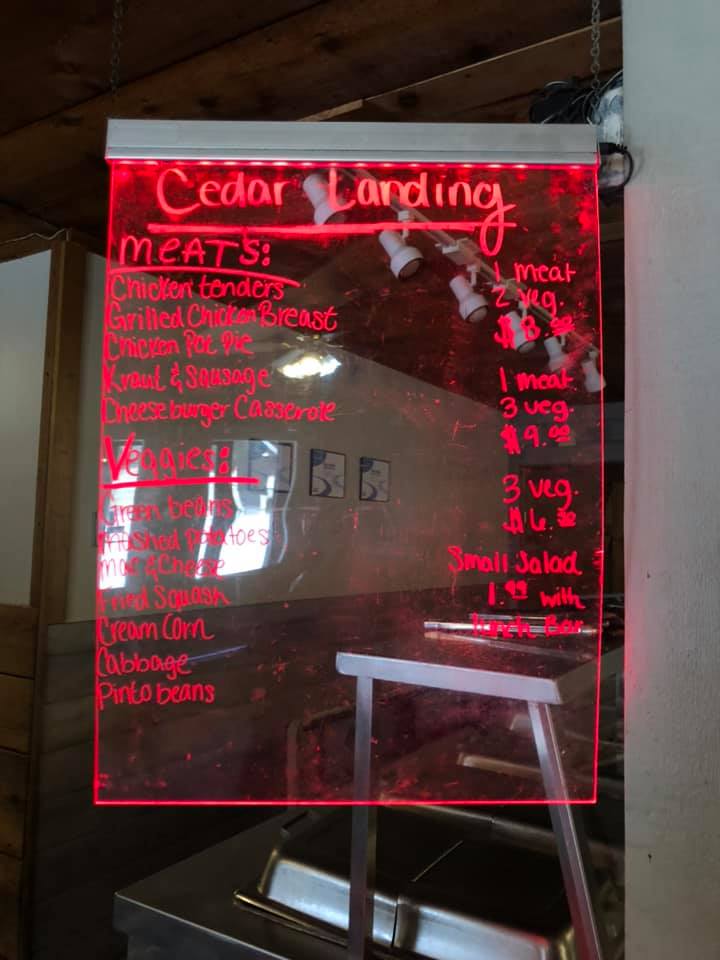 Cedar Landing
MEATS:
Chicken tenders
Grilled Chicken Breast
Chicken Pot Pie
Kraut & Sausage
Cheeseburger Casserole
Veggies:
Green beans
Mashed potatoes
Mac & Cheese
Fried Squash
Cream Corn
Cabbage
Pinto beans
1 meat
2 veg.
$8.50
1 meat
3 veg.
$9.00
3 veg.
$6.50
Small Salad
1.99 with
lunch Bar